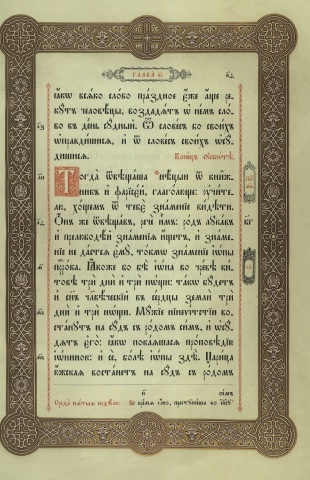 ГЛАВА в҃і
ꙗ҆́кѡ всѧ́ко сло́во пра́здное є҆́же а҆́ще ре-
кꙋ́тъ человѣ́цы, воздадѧ́тъ ѡ҆ не́мъ сло́-
во въ де́нь сꙋ́дный. Ѿ слове́съ бо свои́хъ
ѡ҆правди́шисѧ, и҆ ѿ слове́съ свои́хъ ѡ҆сꙋ́-
дишисѧ.
Коне́цъ сꙋббѡ́тѣ.
Тогда̀ ѿвѣща́ша нѣ́цыи ѿ кни̑ж-
никъ и҆ фарїсє́й, глаго́люще: ᲂу҆чи́те-
лю, хо́щемъ ѿ тебє̀ зна́менїе ви́дѣти.
Ѻ҆́нъ же ѿвѣща́въ, речѐ и҆̀мъ: ро́дъ лꙋка́въ
и҆ прелюбодѣ́й зна́менїѧ и҆́щетъ, и҆ зна́ме-
нїе не да́стсѧ є҆мꙋ̀, то́кмѡ зна́менїе і҆ѡ́ны
прⷪ҇ро́ка. Ꙗ҆́коже бо бѣ̀ і҆ѡ́на во чре́вѣ ки́-
товѣ трѝ дни̑ и҆ трѝ нѡ́щи: та́кѡ бꙋ́детъ
и҆ сн҃ъ чл҃вѣ́ческїй въ се́рдцы землѝ трѝ
дни̑ и҆ трѝ нѡ́щи. Мꙋ́жїе нїнеѵі́тстїи во-
ста́нꙋтъ на сꙋ́дъ съ ро́домъ си́мъ, и҆ ѡ҆сꙋ́-
дѧтъ є҆го̀: ꙗ҆́кѡ пока́ѧшасѧ про́повѣдїю
і҆ѡ́ниною: и҆ сѐ, бо́лѣ і҆ѡ́ны здѣ̀. Цари́ца
ю҆́жскаѧ воста́нетъ на сꙋ́дъ съ ро́домъ
си́мъ
Среда̀ пѧ́тыѧ недѣ́ли: Во вре́мѧ ѻ҆́но, пристꙋпи́ша ко і҆и҃сꙋ